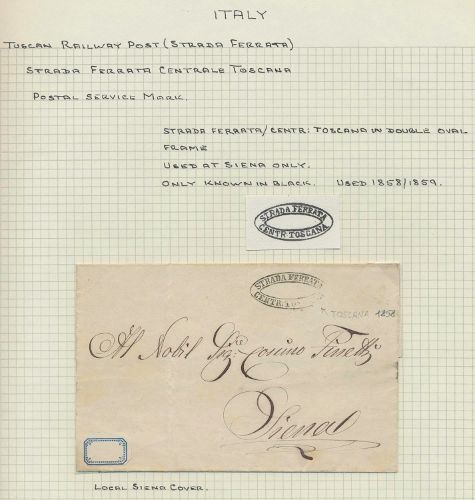 ITALY
TUSCAN RAILWAY POST (STRADA FERRATA)
STRADA FERRATA CENTRALE TOSCANA
POSTAL SERVICE MARK.
STRADA FERRATA/CENTR: TOSCANA IN DOUBLE OVAL
FRAME
USED AT SIENA ONLY.
ONLY KNOWN IN BLACK. USED 1858/1859.
STRADA FERRATA
CENTR. TOSCANA
STRADA FERRATA
CENTR.
TOSCANA 1858
Al Nobil Sig:re Cosimo Finetti
Siena
LOCAL SIENA COVER.